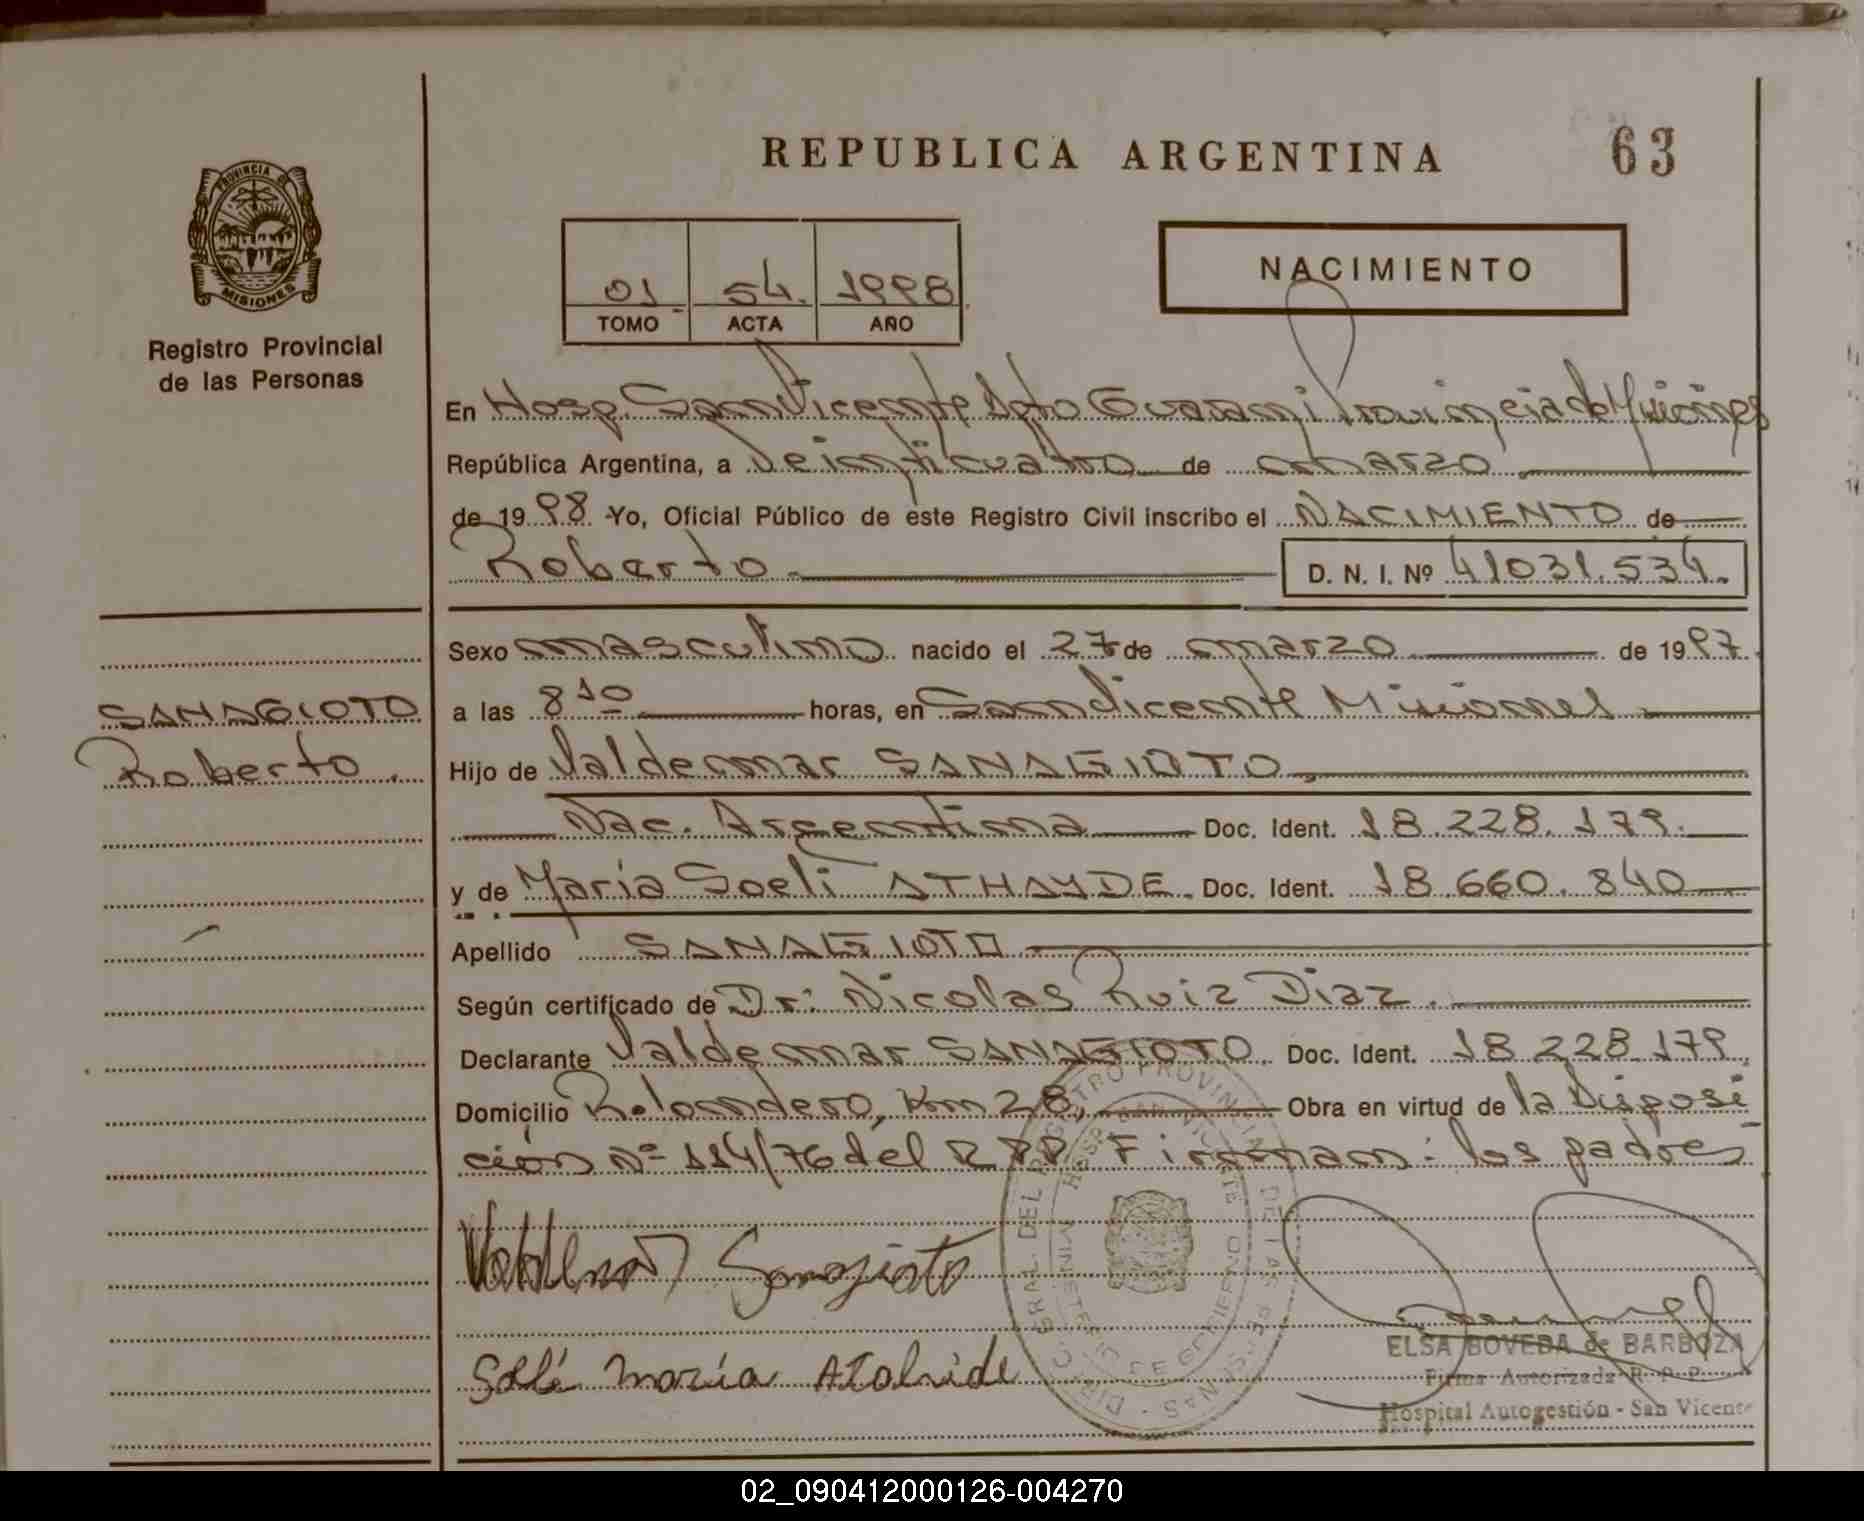 REPUBLICA ARGENTINA
63
PROVINCIA DE
MISIONES
Registro Provincial
de las Personas
01 54. 1998
TOMO ACTA AÑO
NACIMIENTO
En Hosp. San Vicente Dpto Guarani Provincia de Misiones
República Argentina, a Veinticuatro de marzo
de 1998. Yo, Oficial Público de este Registro Civil inscribo el NACIMIENTO de
Roberto D. N. I. Nº 41031.534.
Sexo masculino nacido el 27 de marzo de 1997.
SANAGIOTO
Roberto.
a las 8 10 horas, en San Vicente Misiones
Hijo de Valdemar SANAGIOTO,
Nac. Argentina Doc. Ident. 18.228.179.
y de María Soeli ATHAYDE. Doc. Ident. 18.660.840
Apellido SANAGIOTO
Según certificado de Dr: Nicolas Ruiz Diaz.
Declarante Valdemar SANAGIOTO. Doc. Ident. 18 228 179.
Domicilio Km 28, Obra en virtud de la Disposi
ción Nº 114/76 del R P P Firman: los padres
DIREC. GRAL. DEL REGISTRO PROVINCIAL DE LAS PERSONAS -
HOSP. SAN VICENTE
MINISTERIO DE GOBIERNO
ELSA BOVEDA de BARBOZA
Firma Autorizada R. P. P.
Hospital Autogestión - San Vicente
02_090412000126-004270